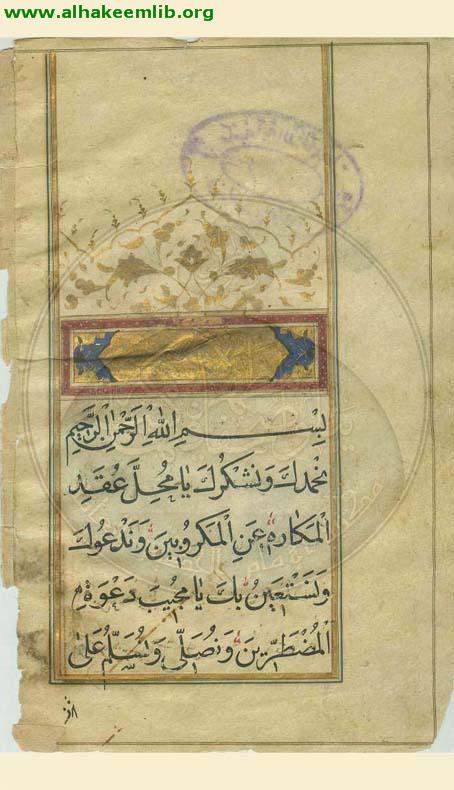 www.alhakeemlib.org
بِسْمِ اللهِ الرَّحْمٰنِ الرَّحِيْمِ
نَحْمَدُكَ وَنَشْكُرُكَ يَا مُحِلَّ عُقَدِ
الْمَكَارِهِ عَنِ الْمَكْرُوبِينَ وَنَدْعُوكَ
وَنَسْتَعِينُ بِكَ يَا مُجِيبَ دَعْوَةِ
الْمُضْطَرِّينَ وَنُصَلِّي وَنُسَلِّمُ عَلَى